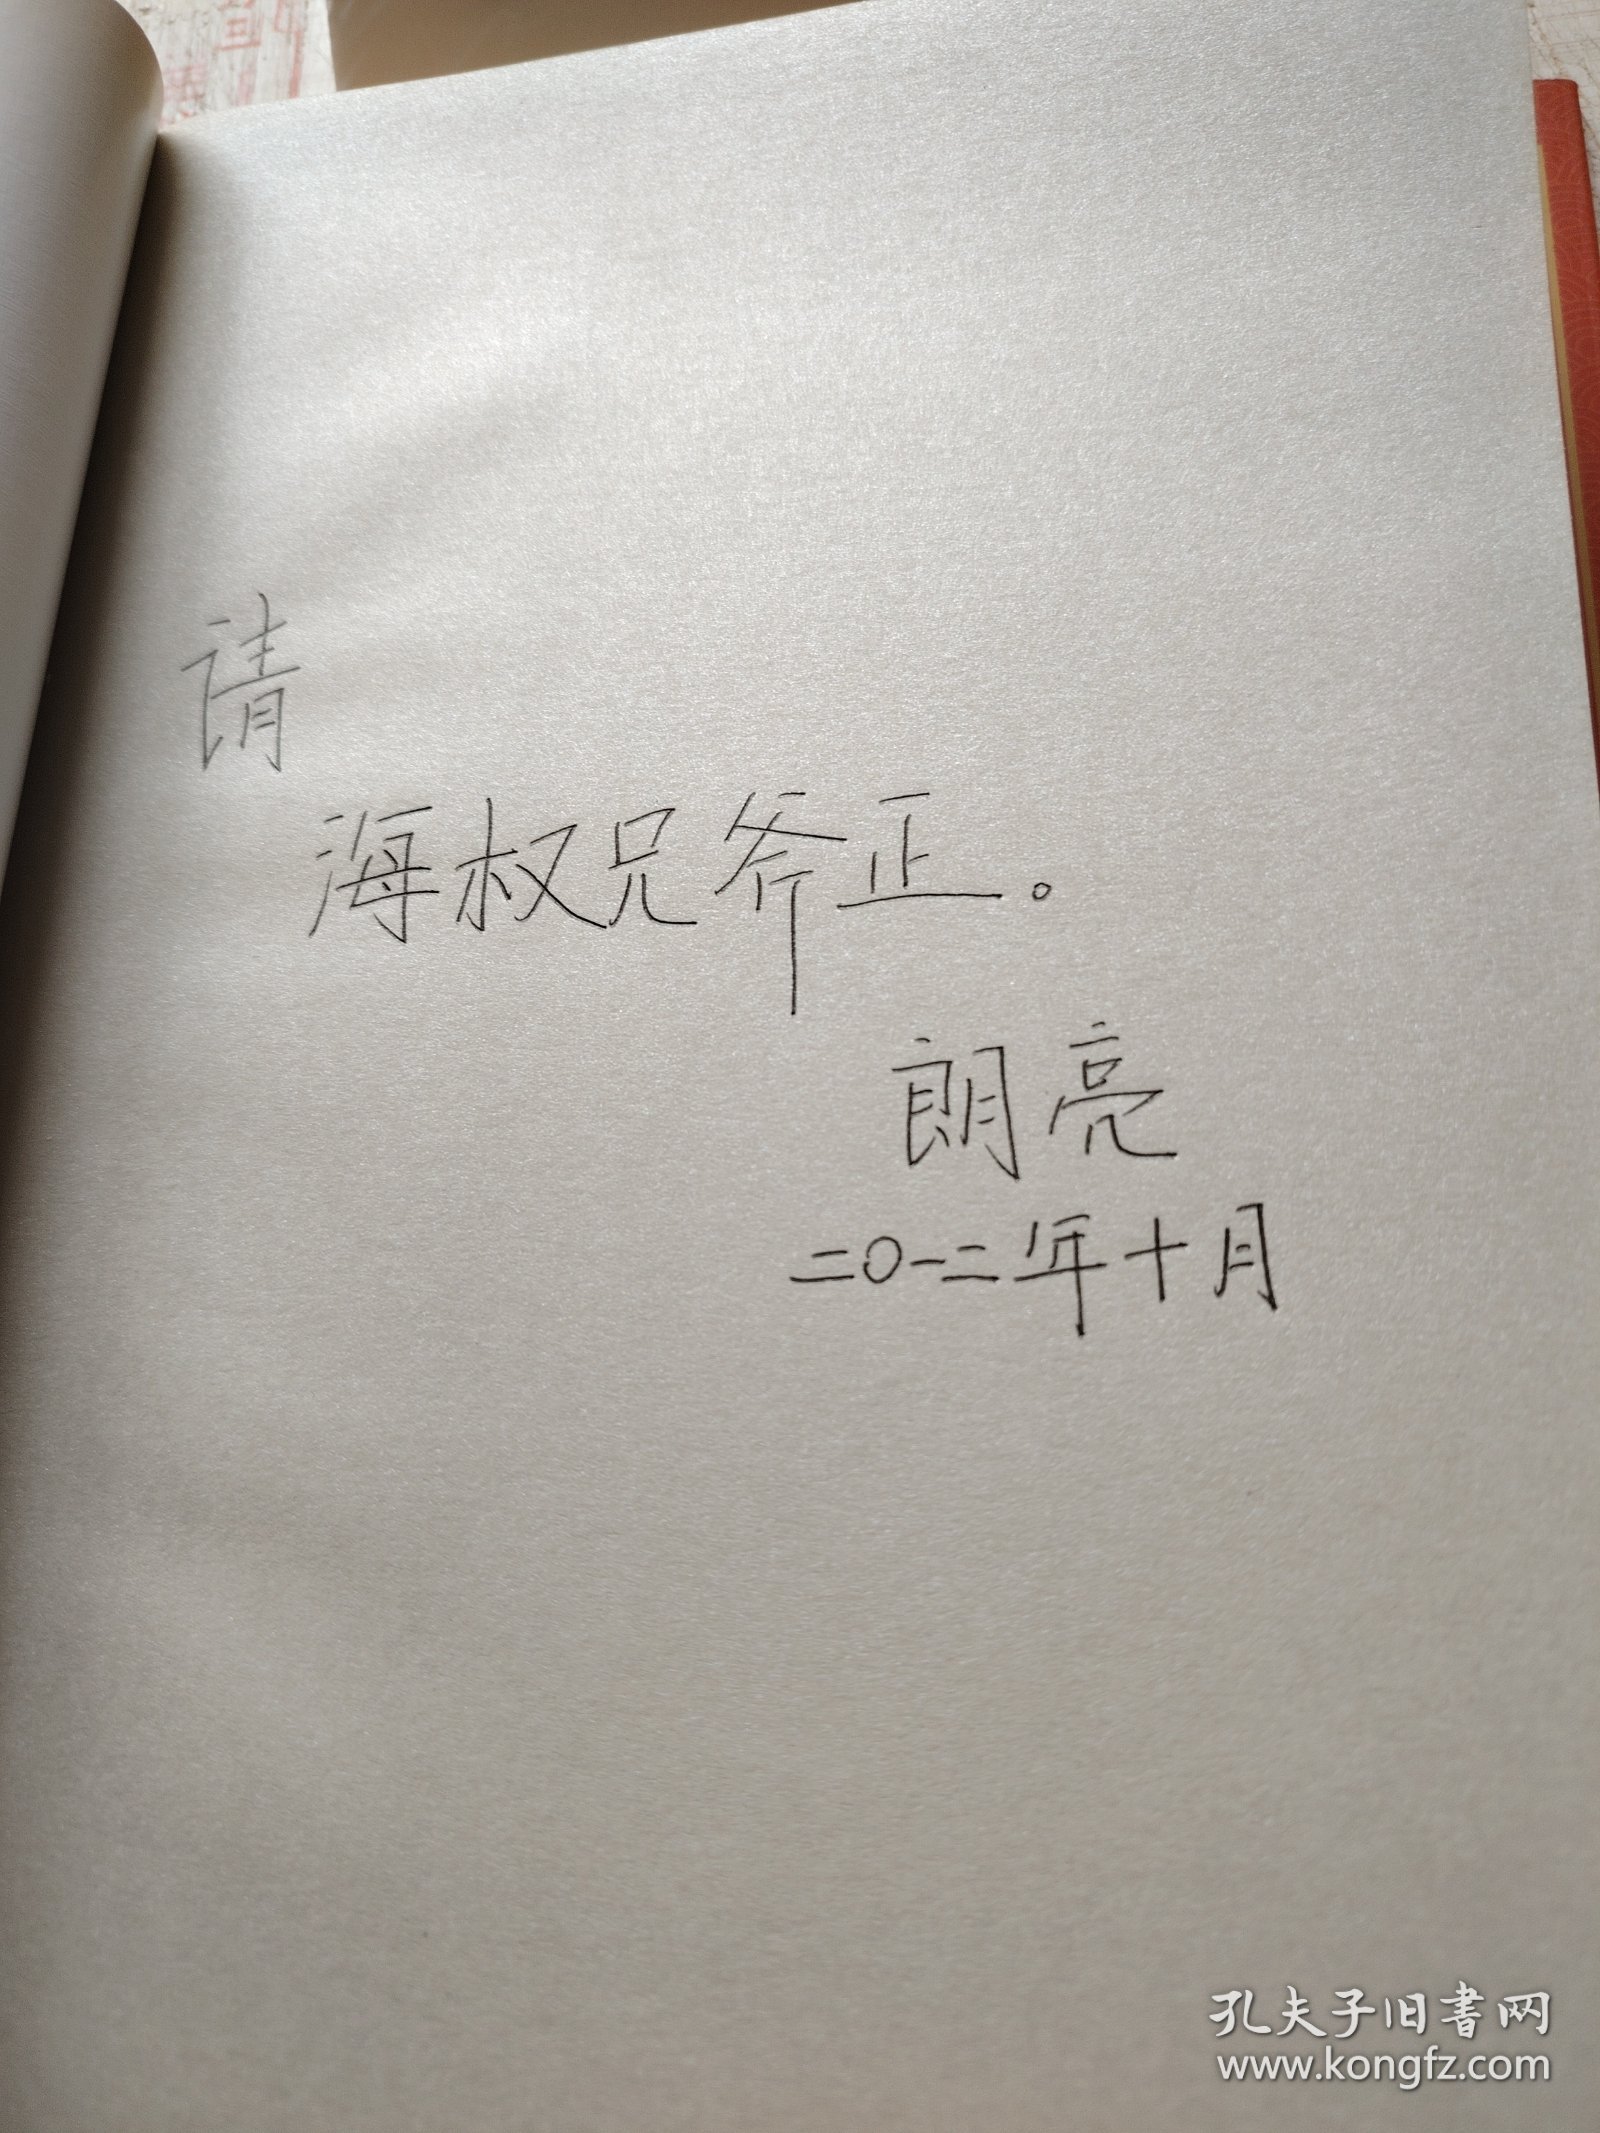 请
海权兄斧正。
朗亮
二〇一二年十月
孔夫子旧书网
www.kongfz.com